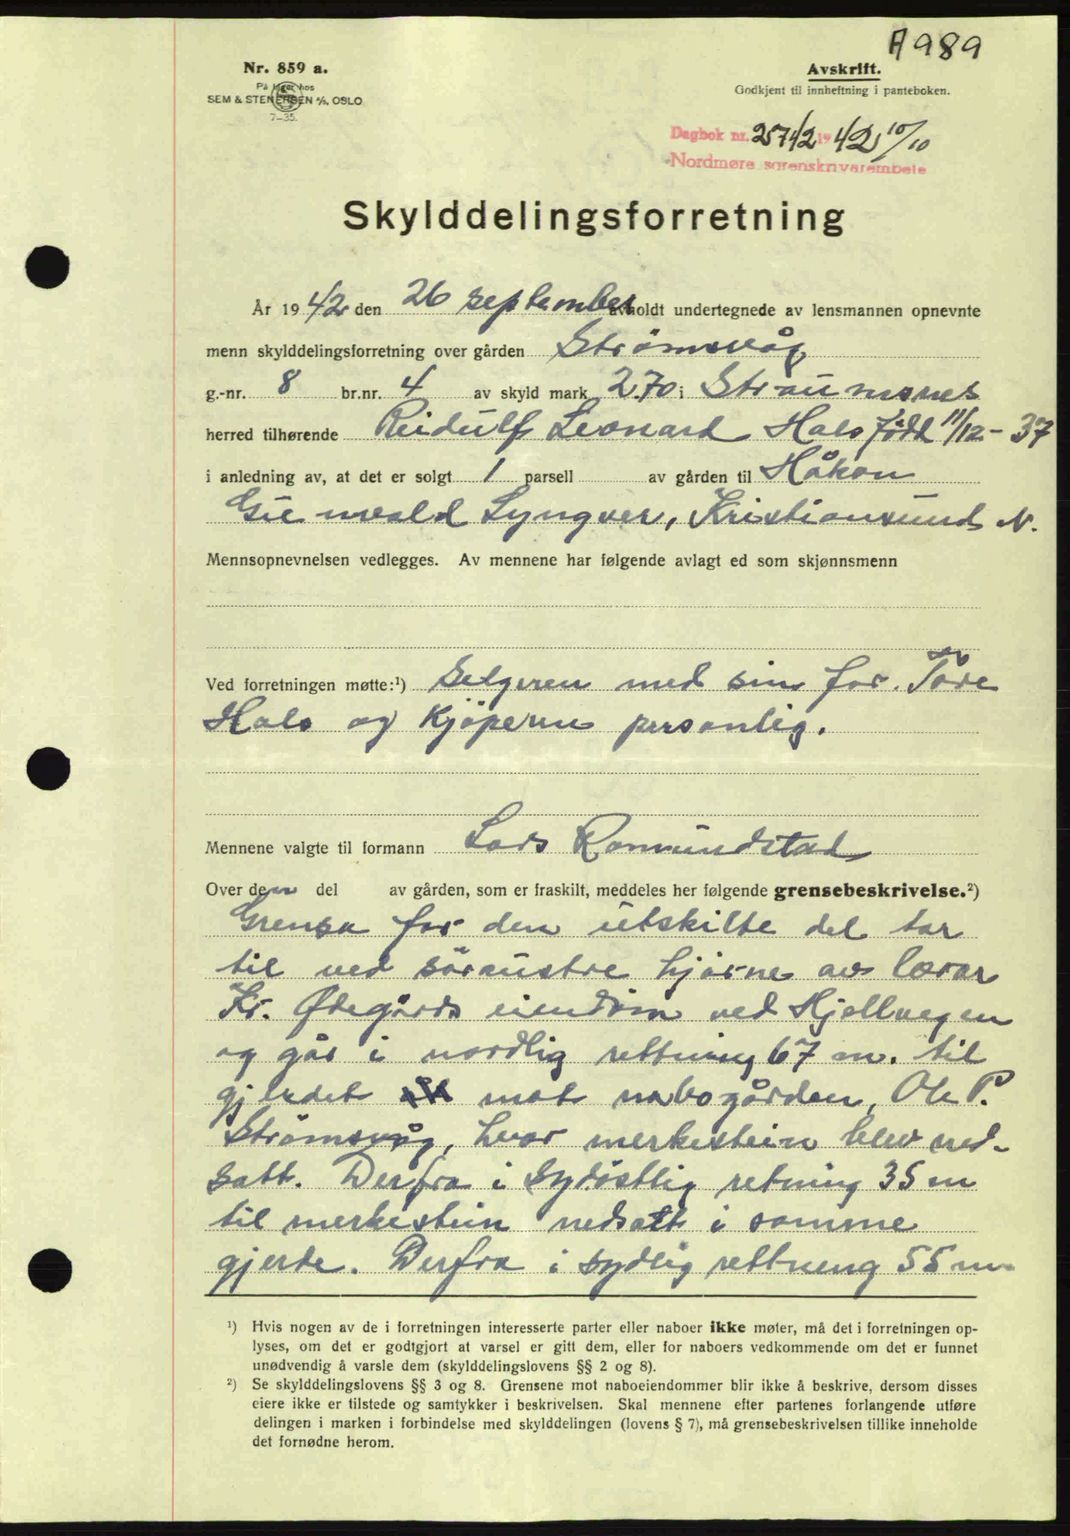 A989
Nr. 859 a.
På lager hos
SEM & STENERSEN A/S, OSLO
7–35.
Avskrift.
Godkjent til innheftning i panteboken.
Dagbok nr. 2574/2 1942 10/10
Nordmøre sorenskrivarembete
Skylddelingsforretning
År 1942 den 26 september avholdt undertegnede av lensmannen opnevnte
menn skylddelingsforretning over gården Strømsvåg
g.-nr. 8 br.nr. 4 av skyld mark 2.70 i Straumsnes
herred tilhørende Reidulf Leonard Hals født 11/12 - 37
i anledning av, at det er solgt 1 parsell av gården til Håkon
Lyngver, Kristiansund N.
Mennsopnevnelsen vedlegges. Av mennene har følgende avlagt ed som skjønnsmenn
Ved forretningen møtte:¹) Selgeren med sin far. Tore
Hals og Kjøperen personlig.
Mennene valgte til formann Lars Romundstad
Over den del av gården, som er fraskilt, meddeles her følgende grensebeskrivelse.²)
Grensa for den utskilte del tar
til ved søraustre hjørne av lærar
Kr. Ødegårds eiendom ved Hjellvegen
og går i nordlig rettning 67 m. til
gjerdet mot nabogården, Ole P.
Strømsvåg, hvor merkestein blev ned-
satt. Derfra i sydøstlig retning 35 m
til merkestein nedsatt i samme
gjerde. Derfra i sydlig rettning 55 m
¹) Hvis nogen av de i forretningen interesserte parter eller naboer ikke møter, må det i forretningen op-
lyses, om det er godtgjort at varsel er gitt dem, eller for naboers vedkommende om det er funnet
unødvendig å varsle dem (skylddelingslovens §§ 2 og 8).
²) Se skylddelingslovens §§ 3 og 8. Grensene mot naboeiendommer blir ikke å beskrive, dersom disses
eiere ikke er tilstede og samtykker i beskrivelsen. Skal mennene efter partenes forlangende utføre
delingen i marken i forbindelse med skylddelingen (lovens § 7), må grensebeskrivelsen tillike inneholde
det fornødne herom.